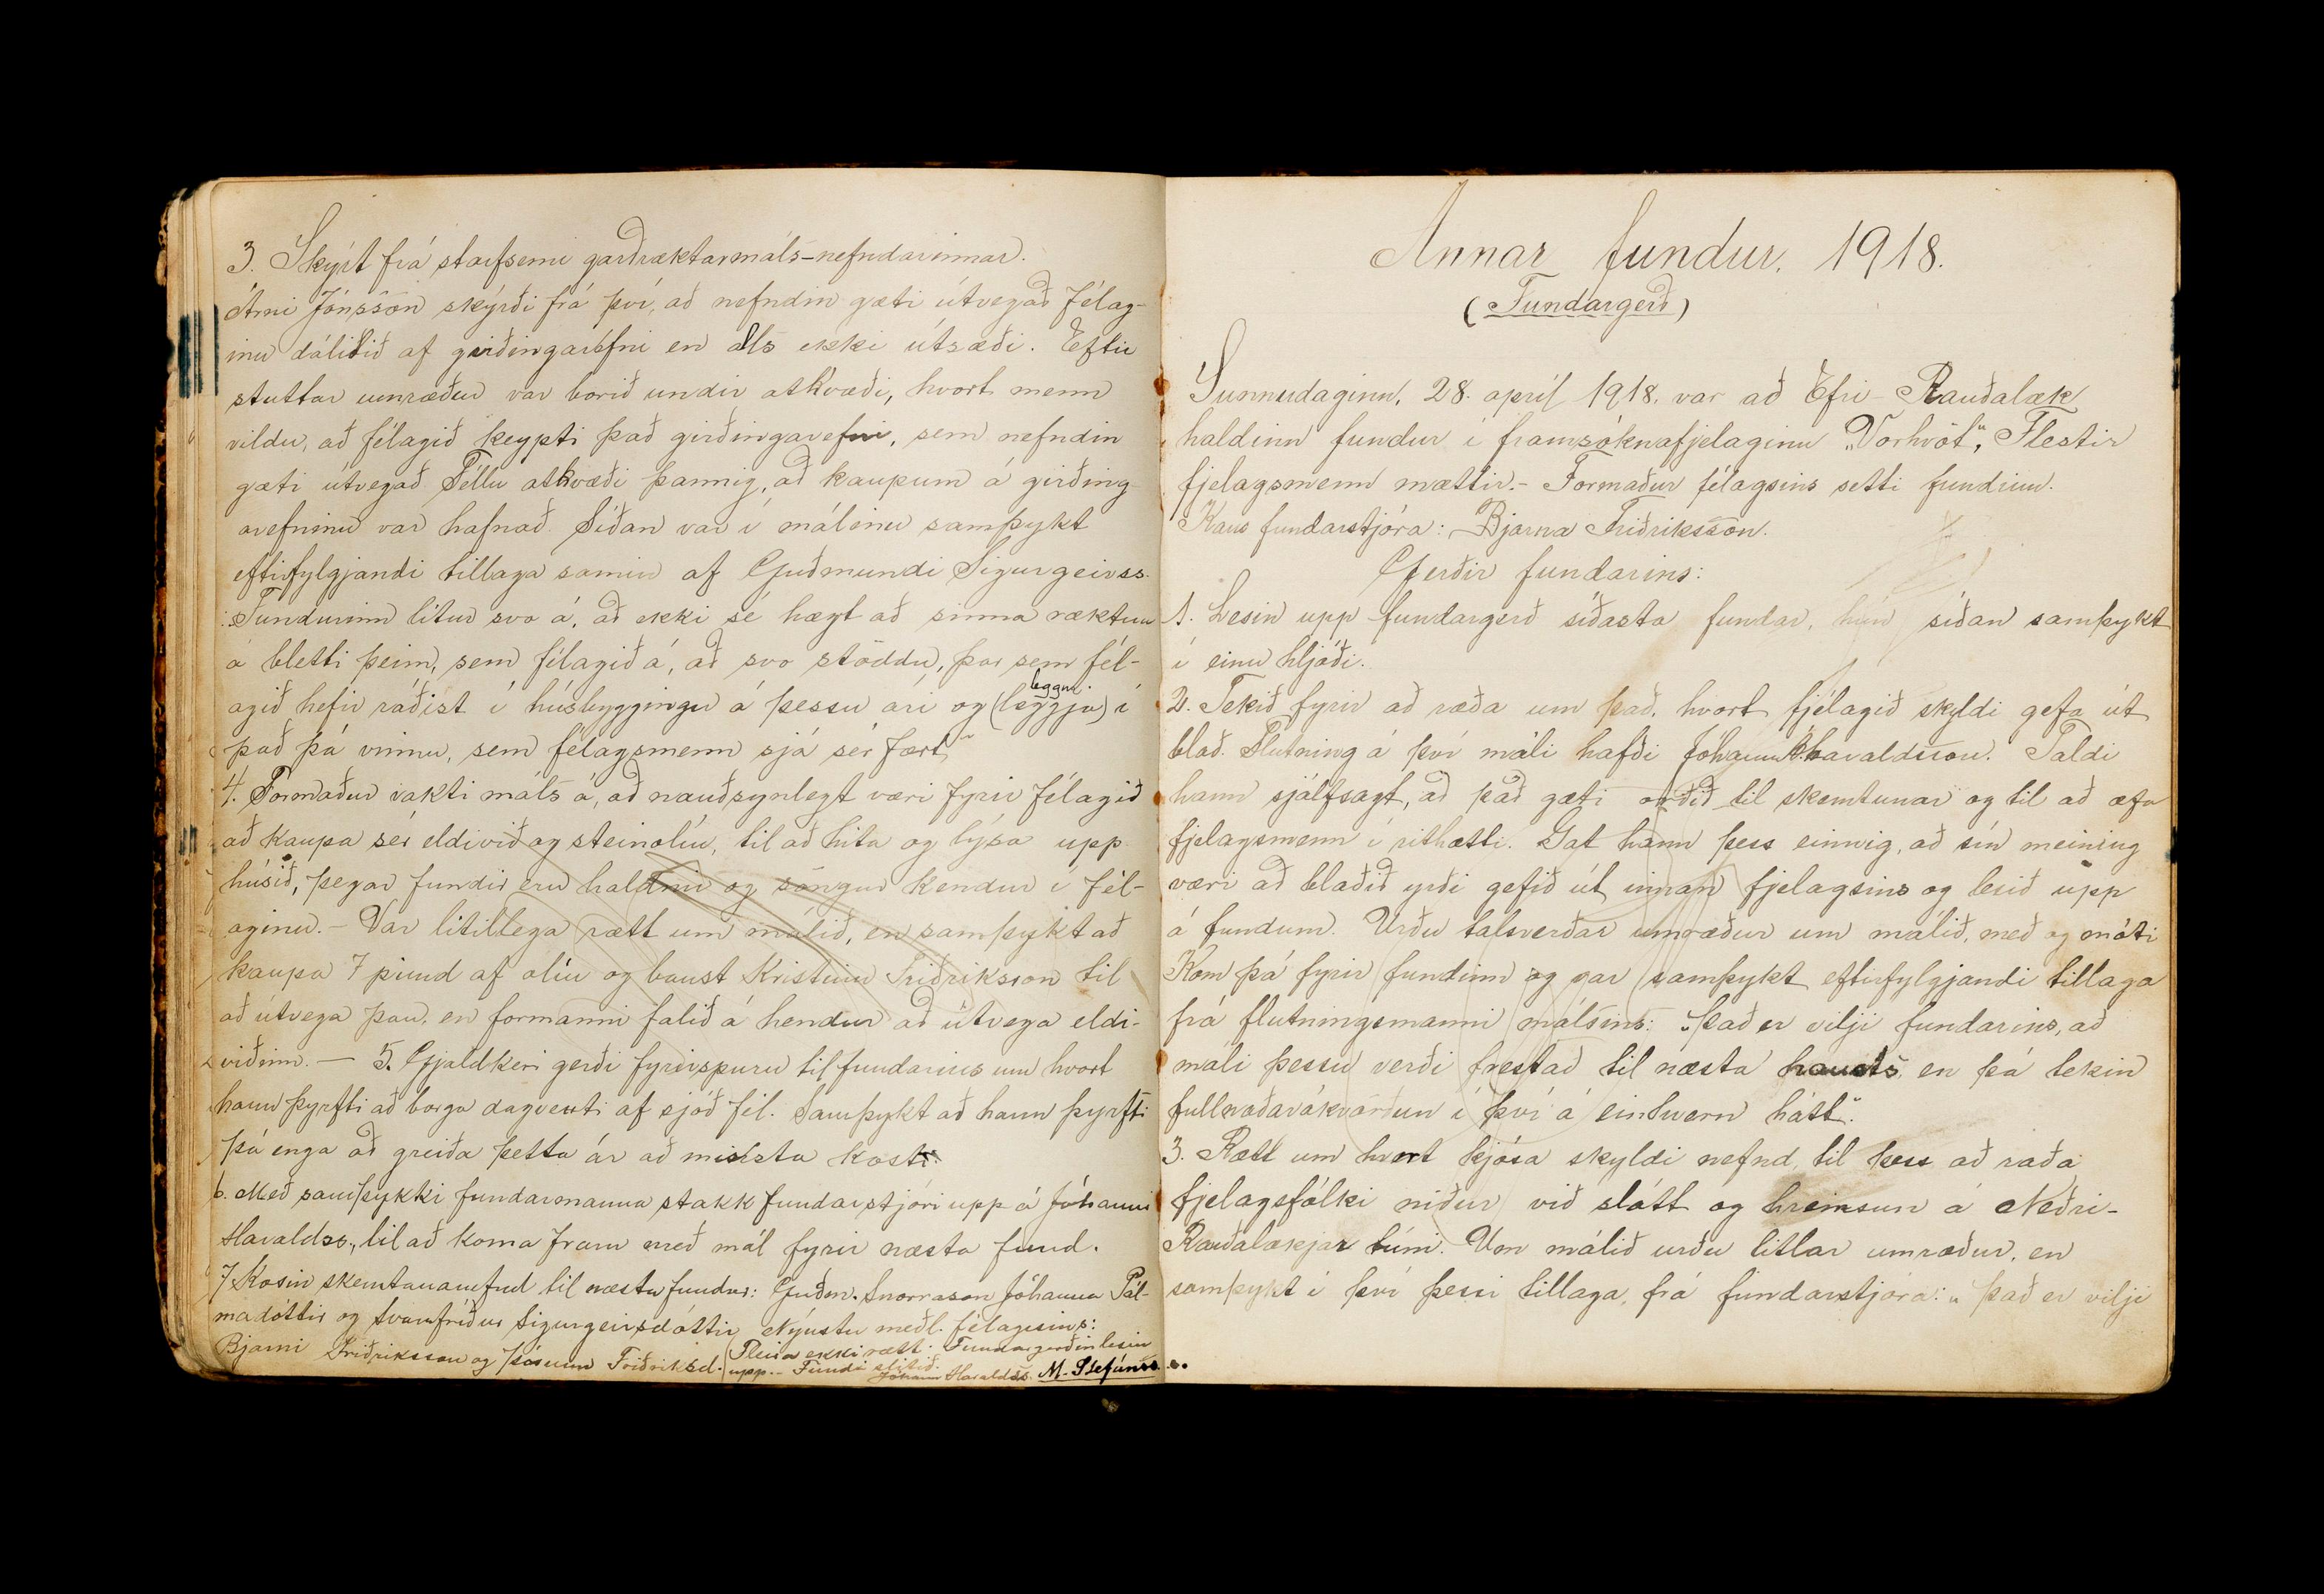 3. Skýrt frá starfsemi garðræktarmáls-nefndarinnar.
Árni Jónsson skýrði frá því, að nefndin gæti útvegað félag-
inu dálitið af girðingarefni en als ekki útsæði. Eftir
stuttar umræður var borið undir atkvæði, hvort menn
vildu, að félagið keypti það girðingarefni, sem nefndin
gæti útvegað. Féllu atkvæði þannig, að kaupum á girðing
arefninu var hafnað. Síðan var í málinu samþykt
eftirfylgjandi tillaga samin af Guðmundi Sigurgeirss.
„Fundurinn lítur svo á, að ekki sé hægt að sinna ræktun
á bletti þeim, sem félagið á, að svo stöddu, þar sem fél-
agið hefir ráðist í húsbyggingu á þessu ári og (leggja) leggur í
það þá vinnu, sem félagsmenn sjá sér fært“
4. Formaður vakti máls á, að nauðsynlegt væri fyrir félagið
að kaupa sér eldivið og steinolíu, til að hita og lýsa upp
húsið, þegar fundir eru haldnir og söngur kendur í fél-
aginu. - Var lítillega rætt um málið, en samþykt að
kaupa 7 pund af olíu og baust Kristinn Friðriksson til
að útvega þau, en formanni falið á hendur að útvega eldi-
viðinn. - 5. Gjaldkeri gerði fyrirspurn til fundarins um hvort
hann þyrfti að borga dagverk af sjóð fél. Samþykt að hann þyrfti
þá enga að greiða þetta ár að minsta kosti.
6. Með samþykki fundarmanna stakk fundarstjóri upp á Jóhanni
Haraldss., til að koma fram með mál fyrir næsta fund.
7. Kosin skemtananefnd til næsta fundar: Guðm. Snorrason Jóhanna Pál-
madóttir og Svanfríður Sigurgeirsdóttir Nýustu meðl. félagsins:
Bjarni Friðriksson og Þórunn Friðriksd. Fleira ekki rætt. Fundargerðin lesin
upp. - Fundi slitið. Jóhann Haraldss. M. Stefánss.
Annar fundur. 1918.
(Fundargerð)
Sunnudaginn, 28. apríl 1918. var að Efri-Rauðalæk
haldinn fundur í framsóknafjelaginu „Vorhvöt“, Flestir
fjelagsmenn mættir. - Formaður félagsins setti fundinn.
Kaus fundarstjóra: Bjarna Friðriksson.
Gerðir fundarins:
1. Lesin upp fundargerð síðasta fundar, hún síðan samþykt
í einu hljóði.
2. Tekið fyrir að ræða um það, hvort fjélagið skyldi gefa út
blað. Flutning á því máli hafði Jóhann Haraldsson. Taldi
hann sjálfsagt, að það gæti orðið til skemtunar og til að æfa
fjelagsmenn í rithætti. Gat hann þess einnig, að sín meining
væri að blaðið yrði gefið út innan fjelagsins og lesið upp
á fundum. Urðu talsverðar umræður um málið, með og móti
Kom þá fyrir fundinn og var samþykt eftirfylgjandi tillaga
frá flutningsmanni málsins: „Það er vilji fundarins, að
máli þessu verði frestað til næsta hausts, en þá tekin
fullnaðarákvörðun í því á einhvern hátt“.
3. Rætt um hvort kjósa skyldi nefnd, til þess að raða
fjelagsfólki niður við slátt og hreinsun á Neðri-
Rauðalækjar túni. Um málið urðu litlar umræður, en
samþykt í því þessi tillaga, frá fundarstjóra: „Það er vilji